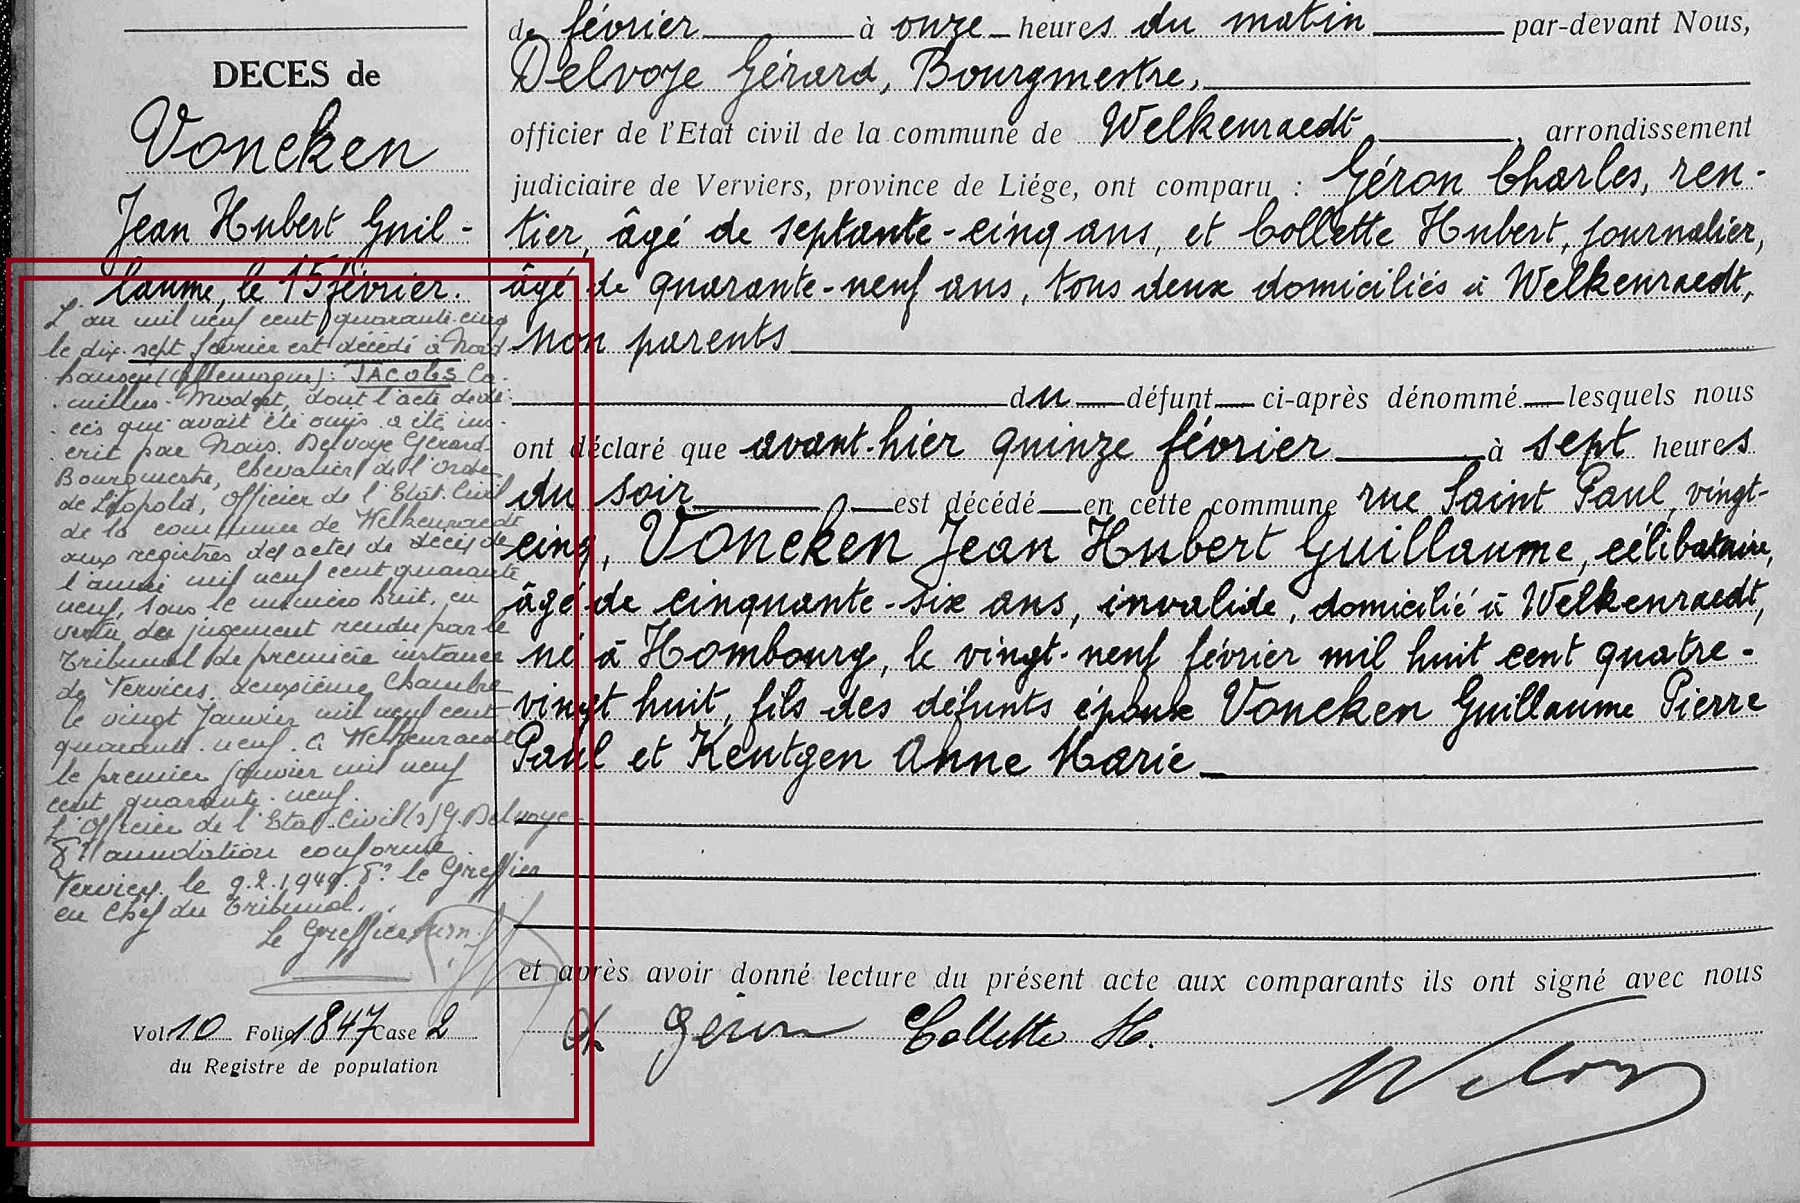 DECES de
Voncken
Jean Hubert Guil-
laume, le 15 février.
L'an mil neuf cent quarante-cinq
le dix-sept février est décédé à Nord
hausen (Allemagne): JACOBS Ca-
millus Modest, dont l'acte de dé-
cès qui avait été omis a été ins-
crit par Nous, Delvoye Gérard
Bourgmestre, Chevalier de l'ordre
de Léopold, Officier de l'Etat Civil
de la commune de Welkenraedt
aux registres des actes de décès de
l'année mil neuf cent quarante
neuf, sous le numéro huit, en
vertu du jugement rendu par le
Tribunal de première instance
de Verviers, deuxième Chambre
le vingt Janvier mil neuf cent
quarante-neuf. A Welkenraedt
le premier février mil neuf
cent quarante-neuf.
L'Officier de l'Etat Civil (s) G. Delvoye
Pr annotation conforme
Verviers, le 9.2.1949. Pr le Greffier
en Chef du Tribunal.
Le Greffier
Vol. 10 Folio 1847 Case 2
du Registre de population
de février à onze heures du matin par-devant Nous,
Delvoye Gérard, Bourgmestre,
officier de l'Etat civil de la commune de Welkenraedt, arrondissement
judiciaire de Verviers, province de Liége, ont comparu : Géron Charles, ren-
tier, âgé de septante-cinq ans, et Collette Hubert, journalier,
âgé de quarante-neuf ans, tous deux domiciliés à Welkenraedt,
non parents
du défunt ci-après dénommé lesquels nous
ont déclaré que avant-hier quinze février à sept heures
du soir est décédé en cette commune rue Saint Paul, vingt-
cinq, Voncken Jean Hubert Guillaume, célibataire,
âgé de cinquante-six ans, invalide, domicilié à Welkenraedt,
né à Hombourg, le vingt-neuf février mil huit cent quatre-
vingt huit, fils des défunts époux Voncken Guillaume Pierre
Paul et Kentgen Anne Marie
et après avoir donné lecture du présent acte aux comparants ils ont signé avec nous
Ch Géron Collette H.